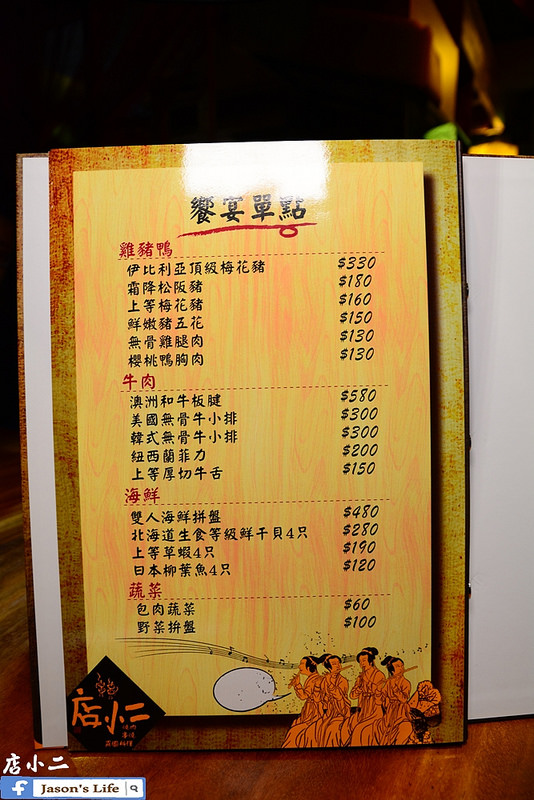 饗宴單點
雞豬鴨
伊比利亞頂級梅花豬 $330
霜降松阪豬 $180
上等梅花豬 $160
鮮嫩豬五花 $150
無骨雞腿肉 $130
櫻桃鴨胸肉 $130
牛肉
澳洲和牛板腱 $580
美國無骨牛小排 $300
韓式無骨牛小排 $300
紐西蘭菲力 $200
上等厚切牛舌 $150
海鮮
雙人海鮮拼盤 $480
北海道生食等級鮮干貝4只 $280
上等草蝦4只 $190
日本柳葉魚4只 $120
蔬菜
包肉蔬菜 $60
野菜拚盤 $100
店小二
店小二
f Jason's Life